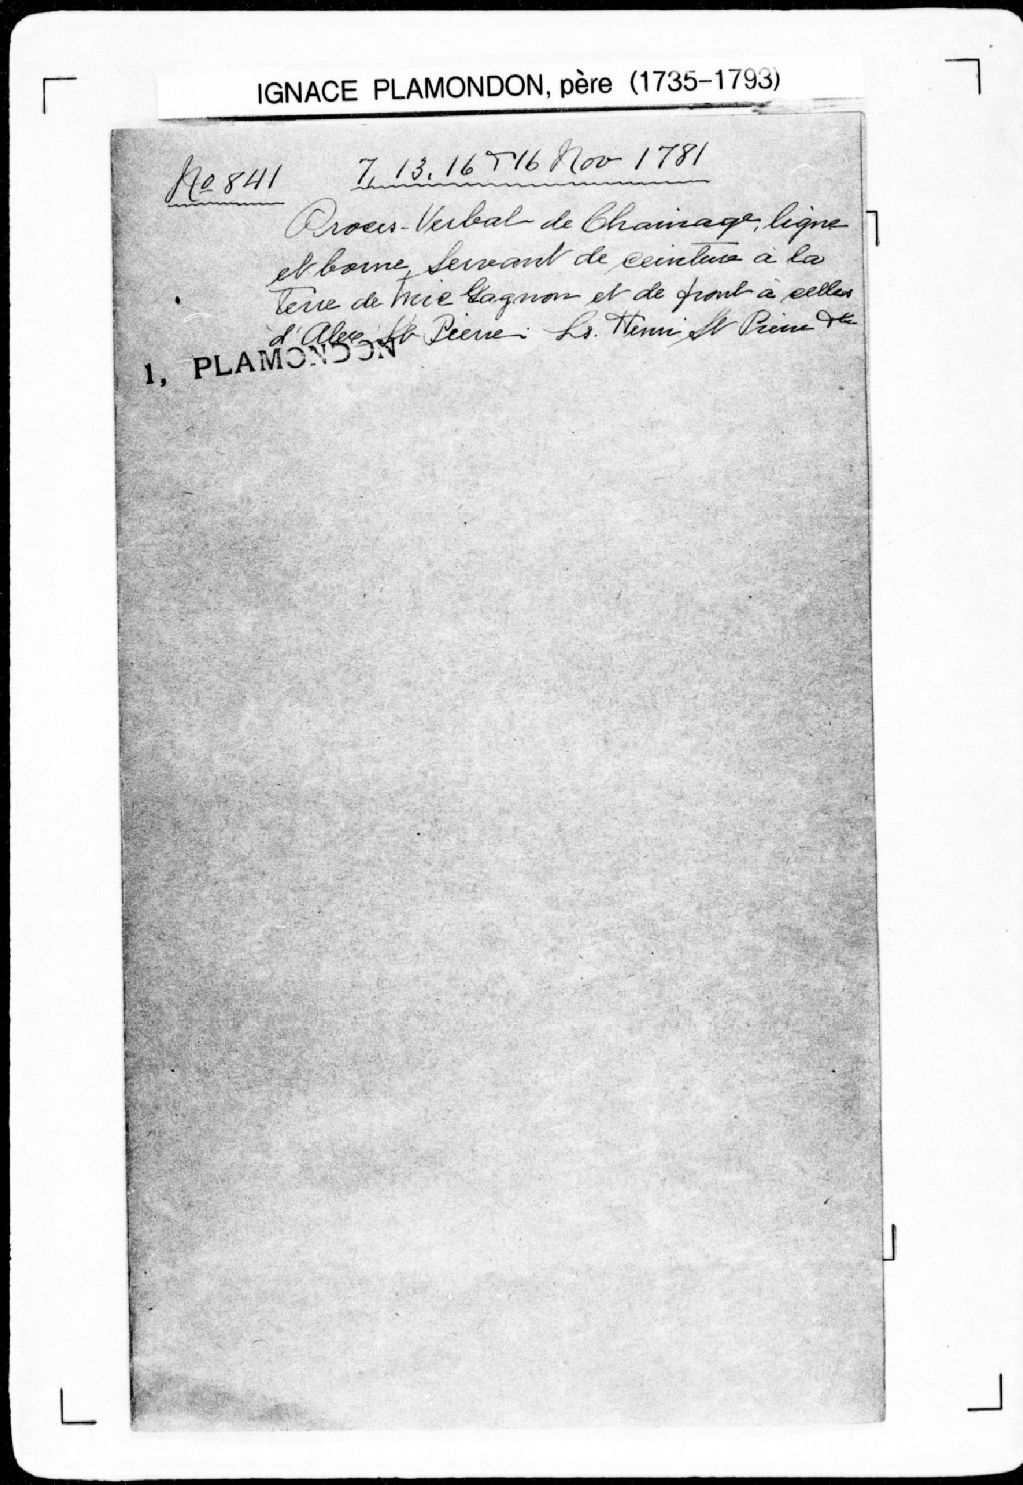 IGNACE PLAMONDON, père (1735-1793)
No 841 7, 13, 16 & 16 Nov 1781
Proces-Verbal de Chainage, ligne
et borne, servant de ceinture à la
Terre de Mic Gagnon et de front à celles
d'Alexe St Pierre: Ls. Henri St Pierre &tc
1, PLAMONDON